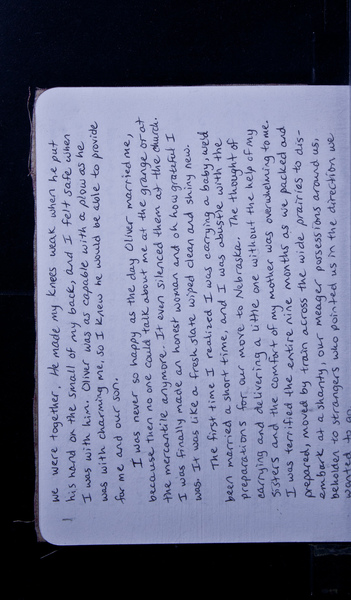 we were together. He made my knees weak when he put
his hand on the small of my back, and I felt safe when
I was with him. Oliver was as capable with a plow as he
was with charming me, so I knew he would be able to provide
for me and our son.
I was never so happy as the day Oliver married me,
because then no one could talk about me at the grange or at
the mercantile anymore. It even silenced them at the church.
I was finally made an honest woman and oh how grateful I
was. It was like a fresh slate wiped clean and shiny new.
The first time I realized I was carrying a baby, we'd
been married a short time, and I was abustle with the
preparations for our move to Nebraska. The thought of
carrying and delivering a little one without the help of my
sisters and the comfort of my mother was overwhelming to me.
I was terrified the entire nine months as we packed and
prepared, moved by train across the wide prairies to dis-
embark at a shanty, our meager possessions around us,
beholden to strangers who pointed us in the direction we
wanted to